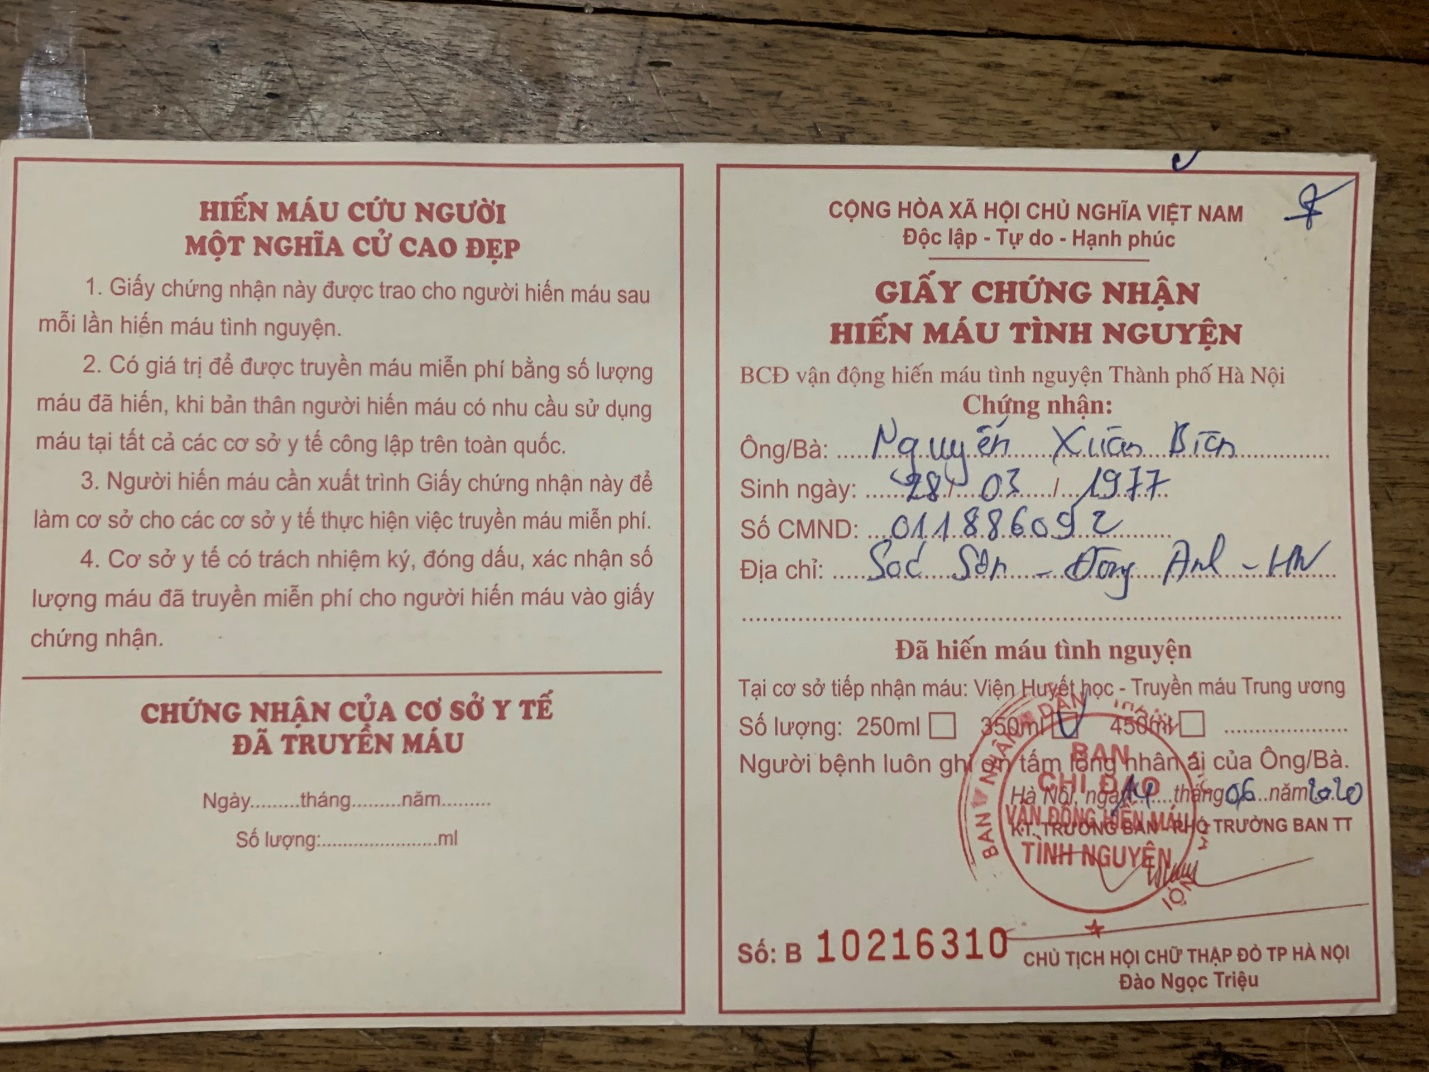 HIẾN MÁU CỨU NGƯỜI
MỘT NGHĨA CỬ CAO ĐẸP
1. Giấy chứng nhận này được trao cho người hiến máu sau
mỗi lần hiến máu tình nguyện.
2. Có giá trị để được truyền máu miễn phí bằng số lượng
máu đã hiến, khi bản thân người hiến máu có nhu cầu sử dụng
máu tại tất cả các cơ sở y tế công lập trên toàn quốc.
3. Người hiến máu cần xuất trình Giấy chứng nhận này để
làm cơ sở cho các cơ sở y tế thực hiện việc truyền máu miễn phí.
4. Cơ sở y tế có trách nhiệm ký, đóng dấu, xác nhận số
lượng máu đã truyền miễn phí cho người hiến máu vào giấy
chứng nhận.
CHỨNG NHẬN CỦA CƠ SỞ Y TẾ
ĐÃ TRUYỀN MÁU
Ngày.........tháng.........năm.........
Số lượng:......................ml
CỘNG HÒA XÃ HỘI CHỦ NGHĨA VIỆT NAM
Độc lập - Tự do - Hạnh phúc
GIẤY CHỨNG NHẬN
HIẾN MÁU TÌNH NGUYỆN
BCĐ vận động hiến máu tình nguyện Thành phố Hà Nội
Chứng nhận:
Ông/Bà: Nguyễn Xuân Biên
Sinh ngày: 28 / 03 / 1977
Số CMND: 011886092
Địa chỉ: Sơn - Đông Anh - HN
Đã hiến máu tình nguyện
Tại cơ sở tiếp nhận máu: Viện Huyết học - Truyền máu Trung ương
Số lượng: 250ml 350ml 450ml
Người bệnh luôn ghi ơn tấm lòng nhân ái của Ông/Bà.
Hà Nội, ngày 14 tháng 06 năm 2020
KT. TRƯỞNG BAN - PHÓ TRƯỞNG BAN TT
BAN NHÂN DÂN
BAN
CHỈ ĐẠO
VẬN ĐỘNG HIẾN MÁU
TÌNH NGUYỆN
Số: B 10216310
CHỦ TỊCH HỘI CHỮ THẬP ĐỎ TP HÀ NỘI
Đào Ngọc Triệu